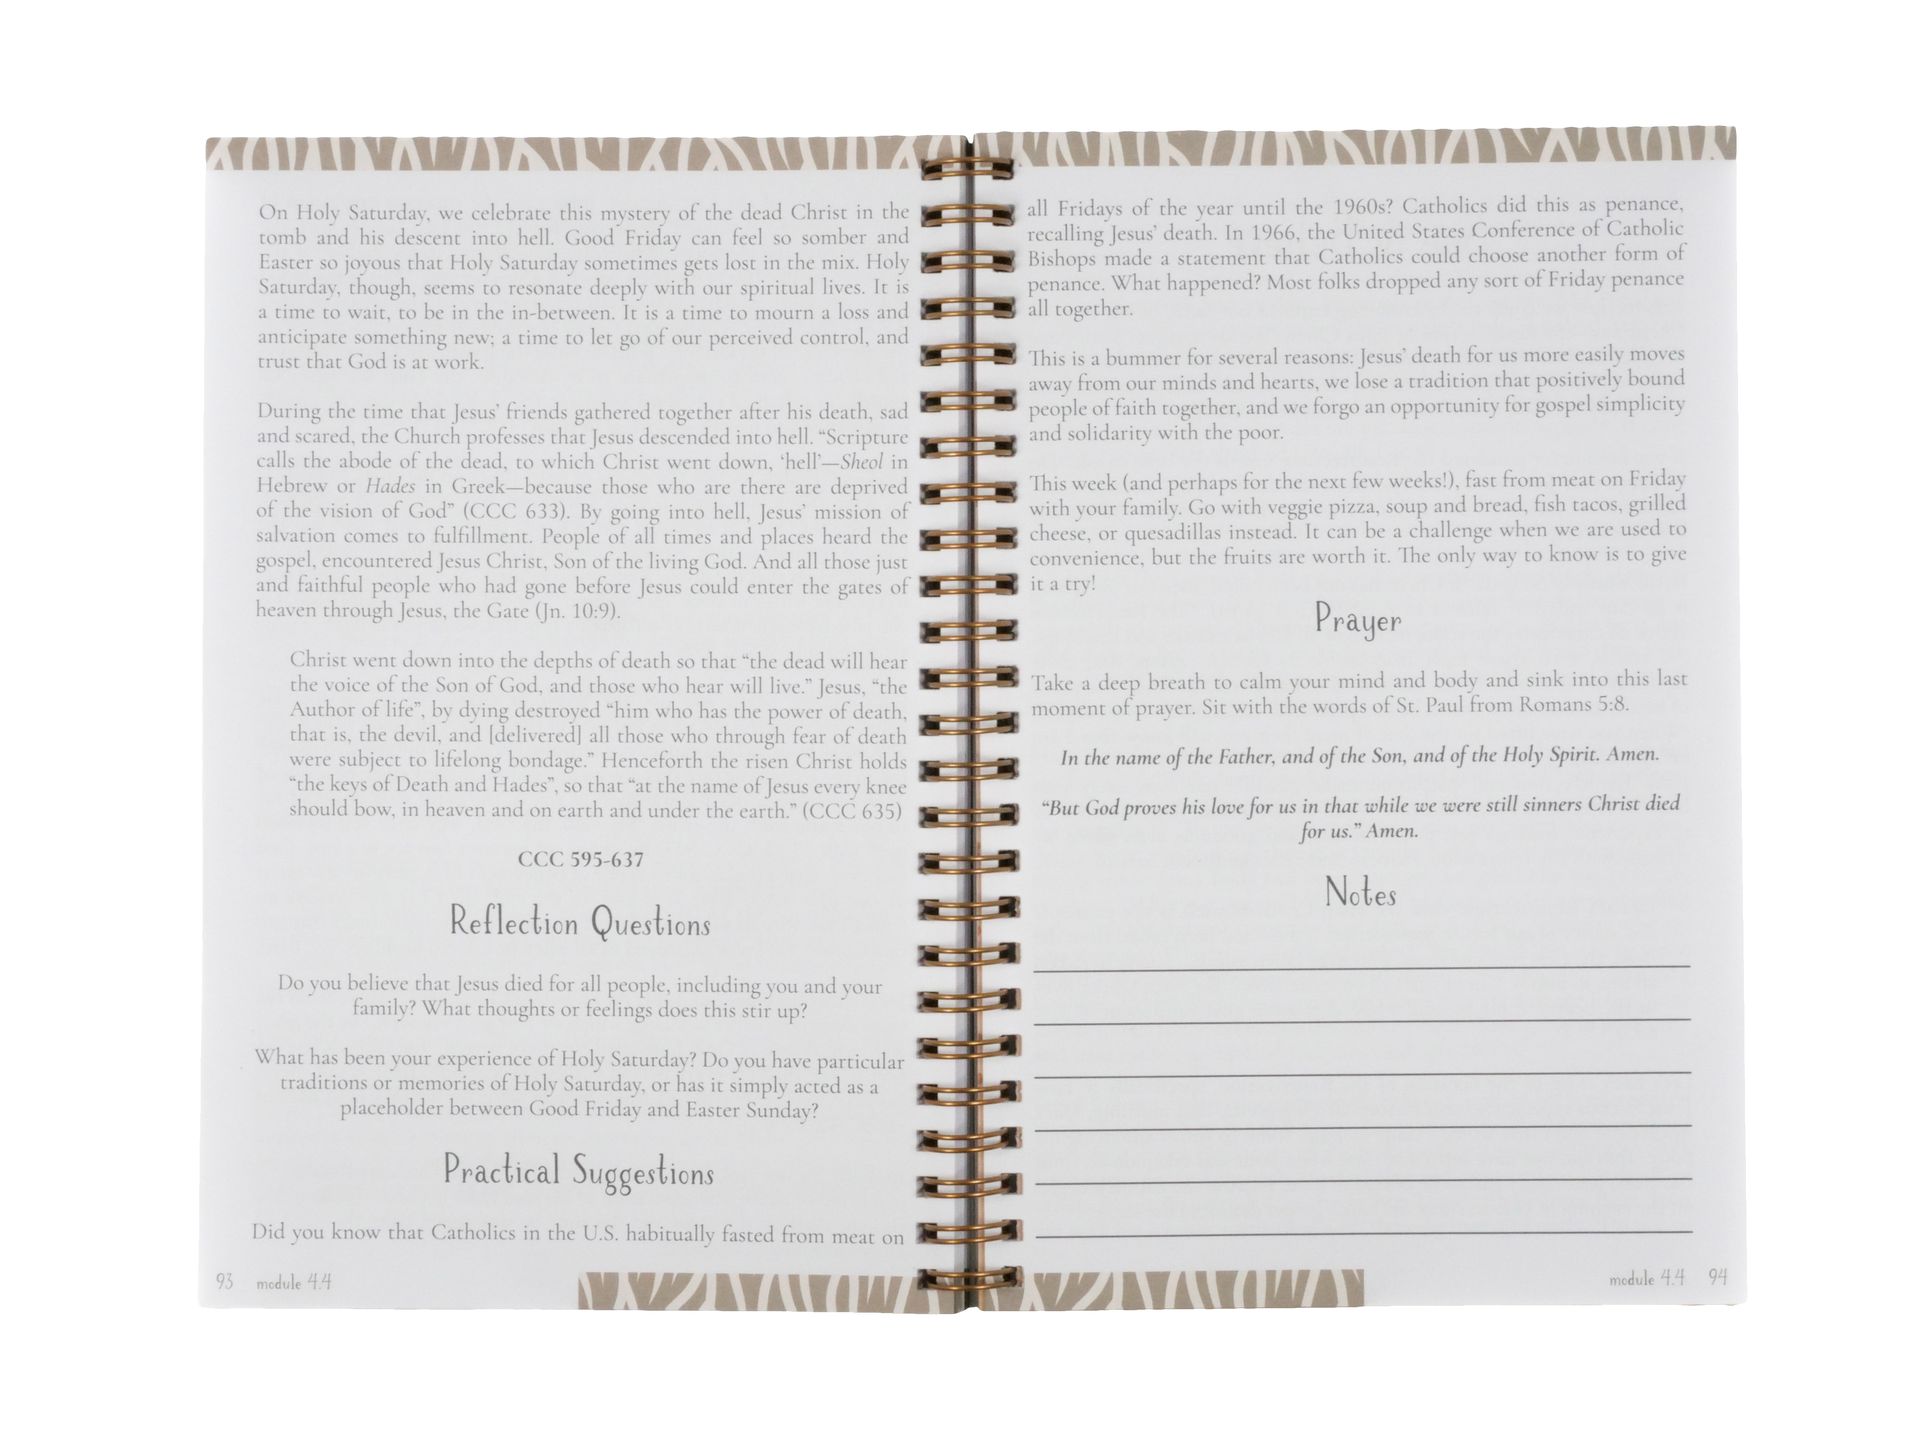 On Holy Saturday, we celebrate this mystery of the dead Christ in the
tomb and his descent into hell. Good Friday can feel so somber and
Easter so joyous that Holy Saturday sometimes gets lost in the mix. Holy
Saturday, though, seems to resonate deeply with our spiritual lives. It is
a time to wait, to be in the in-between. It is a time to mourn a loss and
anticipate something new; a time to let go of our perceived control, and
trust that God is at work.
During the time that Jesus’ friends gathered together after his death, sad
and scared, the Church professes that Jesus descended into hell. “Scripture
calls the abode of the dead, to which Christ went down, ‘hell’—Sheol in
Hebrew or Hades in Greek—because those who are there are deprived
of the vision of God” (CCC 633). By going into hell, Jesus’ mission of
salvation comes to fulfillment. People of all times and places heard the
gospel, encountered Jesus Christ, Son of the living God. And all those just
and faithful people who had gone before Jesus could enter the gates of
heaven through Jesus, the Gate (Jn. 10:9).
Christ went down into the depths of death so that “the dead will hear
the voice of the Son of God, and those who hear will live.” Jesus, “the
Author of life”, by dying destroyed “him who has the power of death,
that is, the devil, and [delivered] all those who through fear of death
were subject to lifelong bondage.” Henceforth the risen Christ holds
“the keys of Death and Hades”, so that “at the name of Jesus every knee
should bow, in heaven and on earth and under the earth.” (CCC 635)
CCC 595-637
Reflection Questions
Do you believe that Jesus died for all people, including you and your
family? What thoughts or feelings does this stir up?
What has been your experience of Holy Saturday? Do you have particular
traditions or memories of Holy Saturday, or has it simply acted as a
placeholder between Good Friday and Easter Sunday?
Practical Suggestions
Did you know that Catholics in the U.S. habitually fasted from meat on
93 module 4.4
all Fridays of the year until the 1960s? Catholics did this as penance,
recalling Jesus’ death. In 1966, the United States Conference of Catholic
Bishops made a statement that Catholics could choose another form of
penance. What happened? Most folks dropped any sort of Friday penance
all together.
This is a bummer for several reasons: Jesus’ death for us more easily moves
away from our minds and hearts, we lose a tradition that positively bound
people of faith together, and we forgo an opportunity for gospel simplicity
and solidarity with the poor.
This week (and perhaps for the next few weeks!), fast from meat on Friday
with your family. Go with veggie pizza, soup and bread, fish tacos, grilled
cheese, or quesadillas instead. It can be a challenge when we are used to
convenience, but the fruits are worth it. The only way to know is to give
it a try!
Prayer
Take a deep breath to calm your mind and body and sink into this last
moment of prayer. Sit with the words of St. Paul from Romans 5:8.
In the name of the Father, and of the Son, and of the Holy Spirit. Amen.
“But God proves his love for us in that while we were still sinners Christ died
for us.” Amen.
Notes
module 4.4 94